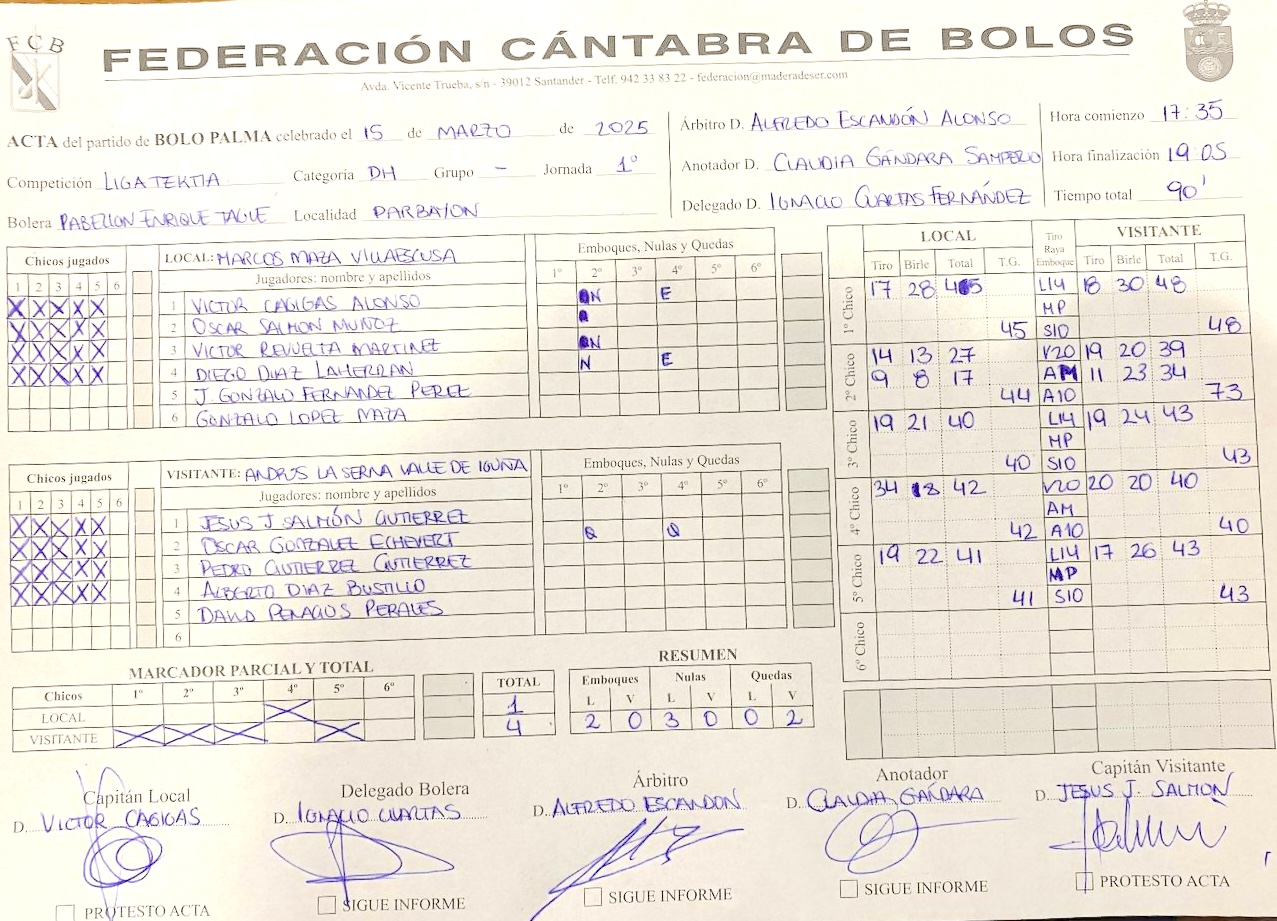 FCB
FEDERACIÓN CÁNTABRA DE BOLOS
Avda. Vicente Trueba, s/n - 39012 Santander - Telf. 942 33 83 22 - federacion@maderadeser.com
ACTA del partido de BOLO PALMA celebrado el 15 de MARZO de 2025
Competición LIGA TEKTIA Categoría DH Grupo - Jornada 1º
Bolera PABELLON ENRIQUE TAGLE Localidad PARBAYON
Árbitro D. ALFREDO ESCANDÓN ALONSO
Anotador D. CLAUDIA GÁNDARA SAMPERIO
Delegado D. IGNACIO CUARTAS FERNÁNDEZ
Hora comienzo 17:35
Hora finalización 19 05
Tiempo total 90'
Chicos jugados
1 2 3 4 5 6
LOCAL: MARCOS MAZA VILLAESCUSA
Jugadores: nombre y apellidos
Emboques, Nulas y Quedas
1º 2º 3º 4º 5º 6º
X X X X X 1 VICTOR CAGIGAS ALONSO N E
X X X X X 2 OSCAR SALMON MUÑOZ
X X X X X 3 VICTOR REVUELTA MARTINEZ N
X X X X X 4 DIEGO DIAZ LAHERRAN N E
5 J. GONZALO FERNANDEZ PEREZ
6 GONZALO LOPEZ MAZA
Chicos jugados
1 2 3 4 5 6
VISITANTE: ANDROS LA SERNA VALLE DE IGUÑA
Jugadores: nombre y apellidos
Emboques, Nulas y Quedas
1º 2º 3º 4º 5º 6º
X X X X X 1 JESUS J SALMÓN GUTIERREZ
X X X X X 2 OSCAR GONZALEZ ECHEVERT Q Q
X X X X X 3 PEDRO GUTIERREZ GUTIERREZ
X X X X X 4 ALBERTO DIAZ BUSTILLO
5 DAVID PENAGOS PERALES
6
LOCAL Tiro Raya Emboque VISITANTE
Tiro Birle Total T.G. Tiro Birle Total T.G.
1º Chico 17 28 45 L14 18 30 48
MP
45 S10 48
2º Chico 14 13 27 V20 19 20 39
9 8 17 AM 11 23 34
44 A10 73
3º Chico 19 21 40 L14 19 24 43
MP
40 S10 43
4º Chico 34 8 42 V20 20 20 40
AM
42 A10 40
5º Chico 19 22 41 L14 17 26 43
MP
41 S10 43
6º Chico
MARCADOR PARCIAL Y TOTAL
Chicos 1º 2º 3º 4º 5º 6º TOTAL
LOCAL X 1
VISITANTE X X X X 4
RESUMEN
Emboques Nulas Quedas
L V L V L V
2 0 3 0 0 2
Capitán Local
D. VICTOR CAGIGAS
PROTESTO ACTA
Delegado Bolera
D. IGNACIO CUARTAS
SIGUE INFORME
Árbitro
D. ALFREDO ESCANDON
SIGUE INFORME
Anotador
D. CLAUDIA GÁNDARA
SIGUE INFORME
Capitán Visitante
D. JESUS J. SALMON
PROTESTO ACTA